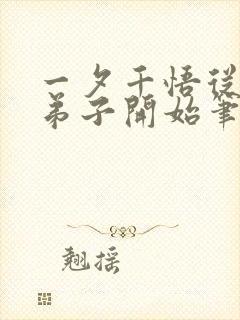 一夕千悟從
弟子開始筆
翹摇